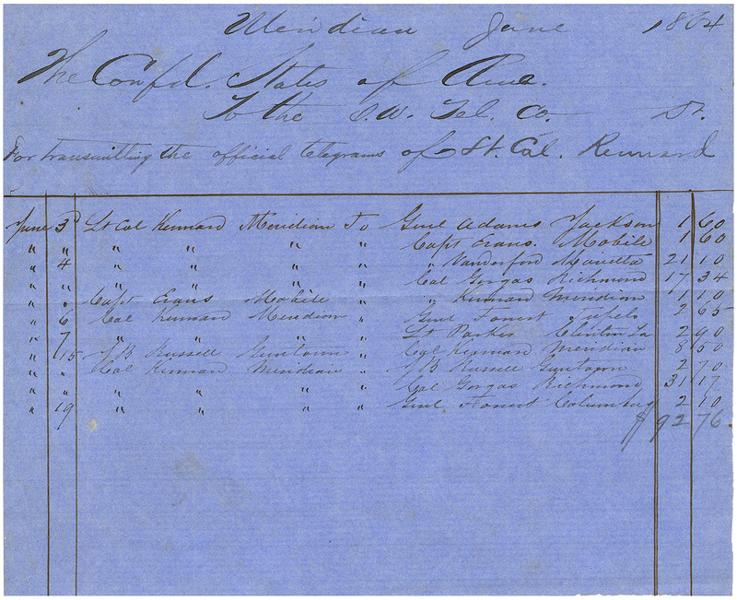 Meridian June 1864
The Confd. States of Ama.
To the S.W. Tel. Co. Dr.
For transmitting the official telegrams of Lt. Col. Kennard
June 3d Lt Col Kennard Meridian To Genl Adams Jackson 1 60
" " " " " " Capt Evans. Mobile 1 60
" 4 " " " " " Vanderford Marietta 21 10
" " " " " " Col Gorgas Richmond 17 34
" " Capt Evans Mobile " " Kennard Meridian 1 10
" 6 Col Kennard Meridian " Genl Forrest Tupelo 2 65
" 7 " " " " Lt Parker Clinton La 2 90
" 15 J B Russell Guntown " Col Kennard Meridian 8 50
" " Col Kennard Meridian " J B Russell Guntown 2 70
" " " " " " Col Gorgas Richmond 31 17
" 19 " " " " Genl Forrest Columbus 2 10
$ 92 76